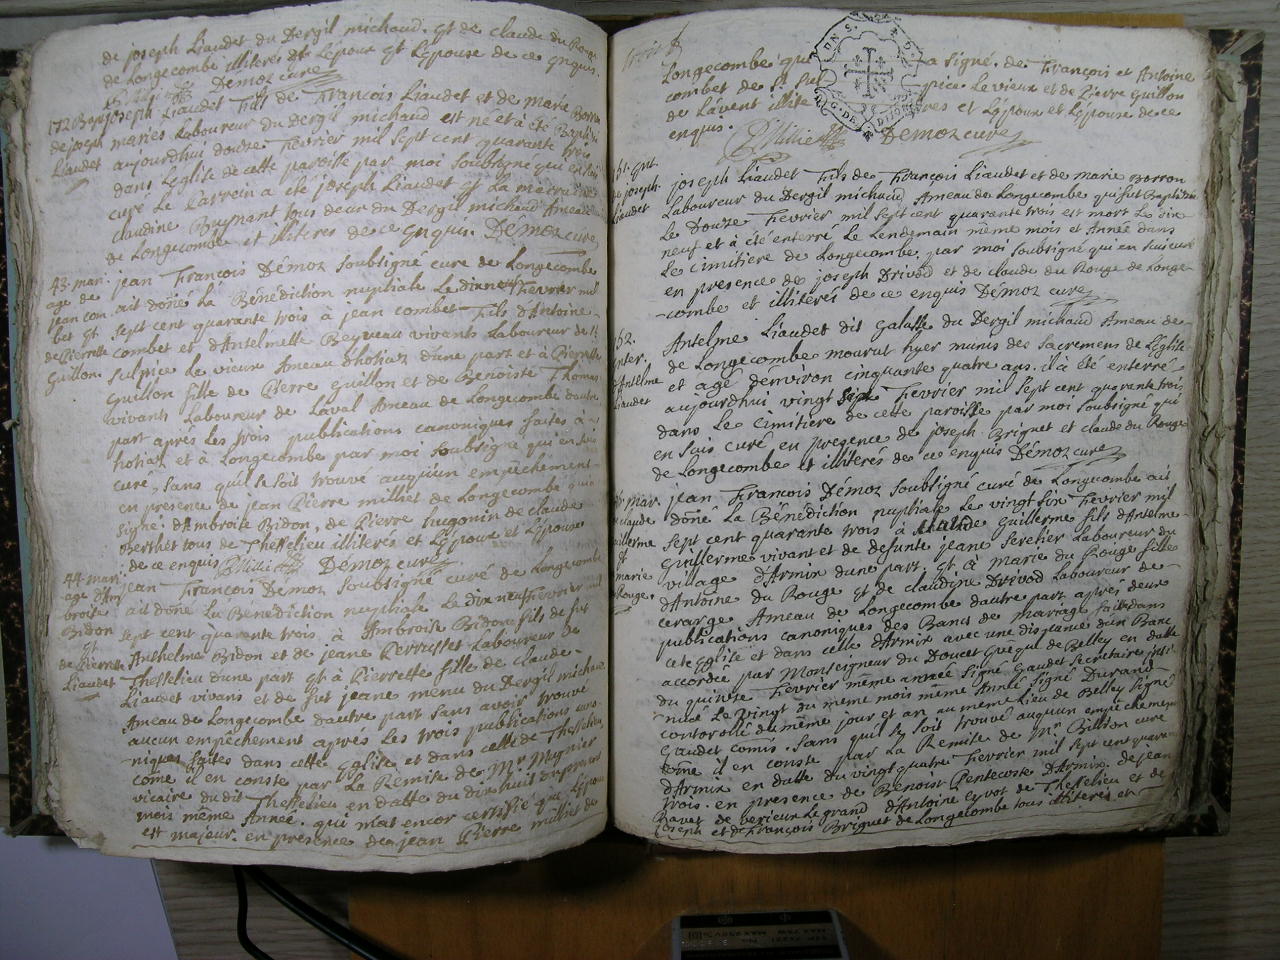 de joseph Liaudet du Dergil michaud. gt de claude du Rouge
de Longecombe illiterés et Lépoux gt Lépouse de ce enquis.
Démoz curé
172 Bap. joseph Liaudet Fils de François Liaudet et de marie Borron
de joseph mariés Laboureur du Dergil michaud est né et à été Baptisé
Liaudet aujourdhui douze Fevrier mil sept cent quarante trois
dans Leglise de cette paroisse par moi soubsigné qui en suis
curé Le parrein a été joseph Liaudet gt La marraine
claudine Buynant tous deux du Dergil michaud Ameau
de Longecombe et illiterés de ce enquis. Démoz curé
43. mari- jean François Démoz soubsigné curé de Longecombe
age de ait doñé La Bénédiction nuptiale Le dixneuf Fevrier mil
jean com sept cent quarante trois à jean combet Fils d'Antoine
bet gt combet et d'Antelmette Beyveau vivants Laboureur de St
de Pierrette sulpice Le vieux Ameau d'hotiaz d'une part et à Pierrette
Guillon. Guillon fille de Pierre Guillon et de Benoiste Thomas
vivants Laboureur de Laval Ameau de Longecombe dautre
part après Les trois publications canoniques faites à
hotiaz et à Longecombe par moi soubsigné qui en suis
curé, sans qu'il se soit trouvé auquun empêchement
en presence de jean Pierre milliet de Longecombe qui a
signé. d'Ambroise Bidon, de Pierre hugonin de claude
Berthet tous de Thesselieu illiterés et Lépoux et Lépouse
de ce enquis JPMilliet Démoz curé
44. mari- jean François Démoz soubsigné curé de Longecombe
age d'Am ait doñé La Benediction nuptiale Le dix neuf Fevrier mil
broise sept cent quarante trois, à Ambroise Bidon fils de fut
Bidon Anthelme Bidon et de jeane Perrusset Laboureur de
gt
de Pierrette Thesselieu dune part gt à Pierrette fille de claude
Liaudet Liaudet vivans et de fut jeane menu du Dergil michaud
Ameau de Longecombe dautre part sans avoir trouvé
aucun empêchement après Les trois publications cano-
niques faites dans cette Eglise et dans celle de Thesselieu
côme il en conste par La Remise de Mr Mugnier
vicaire du dit Thesselieu en datte du dix huit du present
mois même Année. qui mat encor certifié que Lépoux
est majeur. en presence de jean Pierre milliet de
Longecombe qui a signé. de François et Antoine
combet de St Sulpice Le vieux et de Pierre Guillon
de Lavent illiterés et Lépoux et Lépouse de ce
enquis. JPMilliet Démoz curé
151. gnt. joseph Liaudet Fils de François Liaudet et de marie Borron
de joseph Laboureur du Dergil michaud Ameau de Longecombe qui fut Baptisé
Liaudet Le Douze Fevrier mil sept cent quarante trois est mort Le dix
neuf et à été enterré Le Lendemain même mois et Année dans
Le cimitiere de Longecombe, par moi soubsigné qui en suis curé
en presence de joseph Drivod et de claude du Rouge de Longe-
combe et illiterés de ce enquis Démoz curé
152. Antelme Liaudet dit Galasse du Dergil michaud Ameau de
enter. de Longecombe mourut hyer munis des sacremens de Léglise
d'Antelme et agé d'environ cinquante quatre ans. il à été enterré
Liaudet aujourdhui vingt sept Fevrier mil sept cent quarante trois
dans Le cimitiere de cette paroisse par moi soubsigné qui
en suis curé en presence de joseph Briguet et claude du Rouge
de Longecombe et illiterés des ce enquis Démoz curé
45. mar. jean François Démoz soubsigné curé de Longecombe ait
de claude doñé La Bénédiction nuptiale Le vingt six Fevrier mil
Guillerme sept cent quarante trois à claude Guillerme fils d'Antelme
gt Guillerme vivant et de défunte jeane Seretier Laboureur du
marie village d'Armix dune part, gt à marie du Rouge fille
du Rouge. d'Antoine du Rouge gt de claudine Drivod Laboureur de
cerarge Ameau de Longecombe dautre part après deux
publications canoniques des Bancs de mariage faites dans
cete Eglise et dans celle d'Armix avec une dispance d'un Banc
accordée par Monseigneur du Doucet Eveque de Belley en datte
du quinze Fevrier même année signé Gaudet Secretaire insi-
nuée Le vingt du meme mois même Année signé Durand
controllé du même jour et an au meme Lieu de Belley signé
Gaudet comis. sans qu'il se soit trouvé auquun empêchement
côme il en conste par La Remise de Mr. Billion curé
d'Armix en datte du vingt quatre Fevrier mil sept cent quara
trois. en presence de Benoist Pentecoste d'Armix. de jean
Ravet de verieux Le grand d'Antoine eyvot de Thesselieu et de
joseph et de François Briguet de Longecombe tous illiterés et